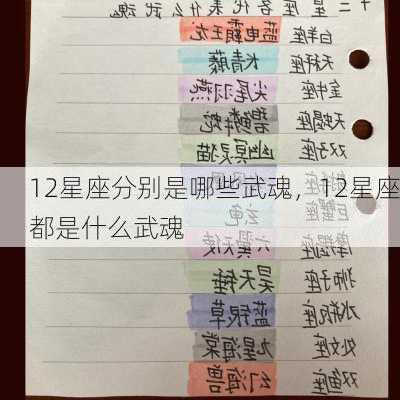 十二星座各代表什么武魂
白羊座 蓝电霸王龙
天秤座 青藤
金牛座 尖尾羽燕
天蝎座 碧鳞蛇
双子座 幽冥灵猫
12星座分别是哪些武魂，12星座
都是什么武魂
巨蟹座 玄龟
摩羯座 六翼天使
狮子座 昊天锤
水瓶座 蓝银草
处女座 九星海棠
双鱼座 幻海兽